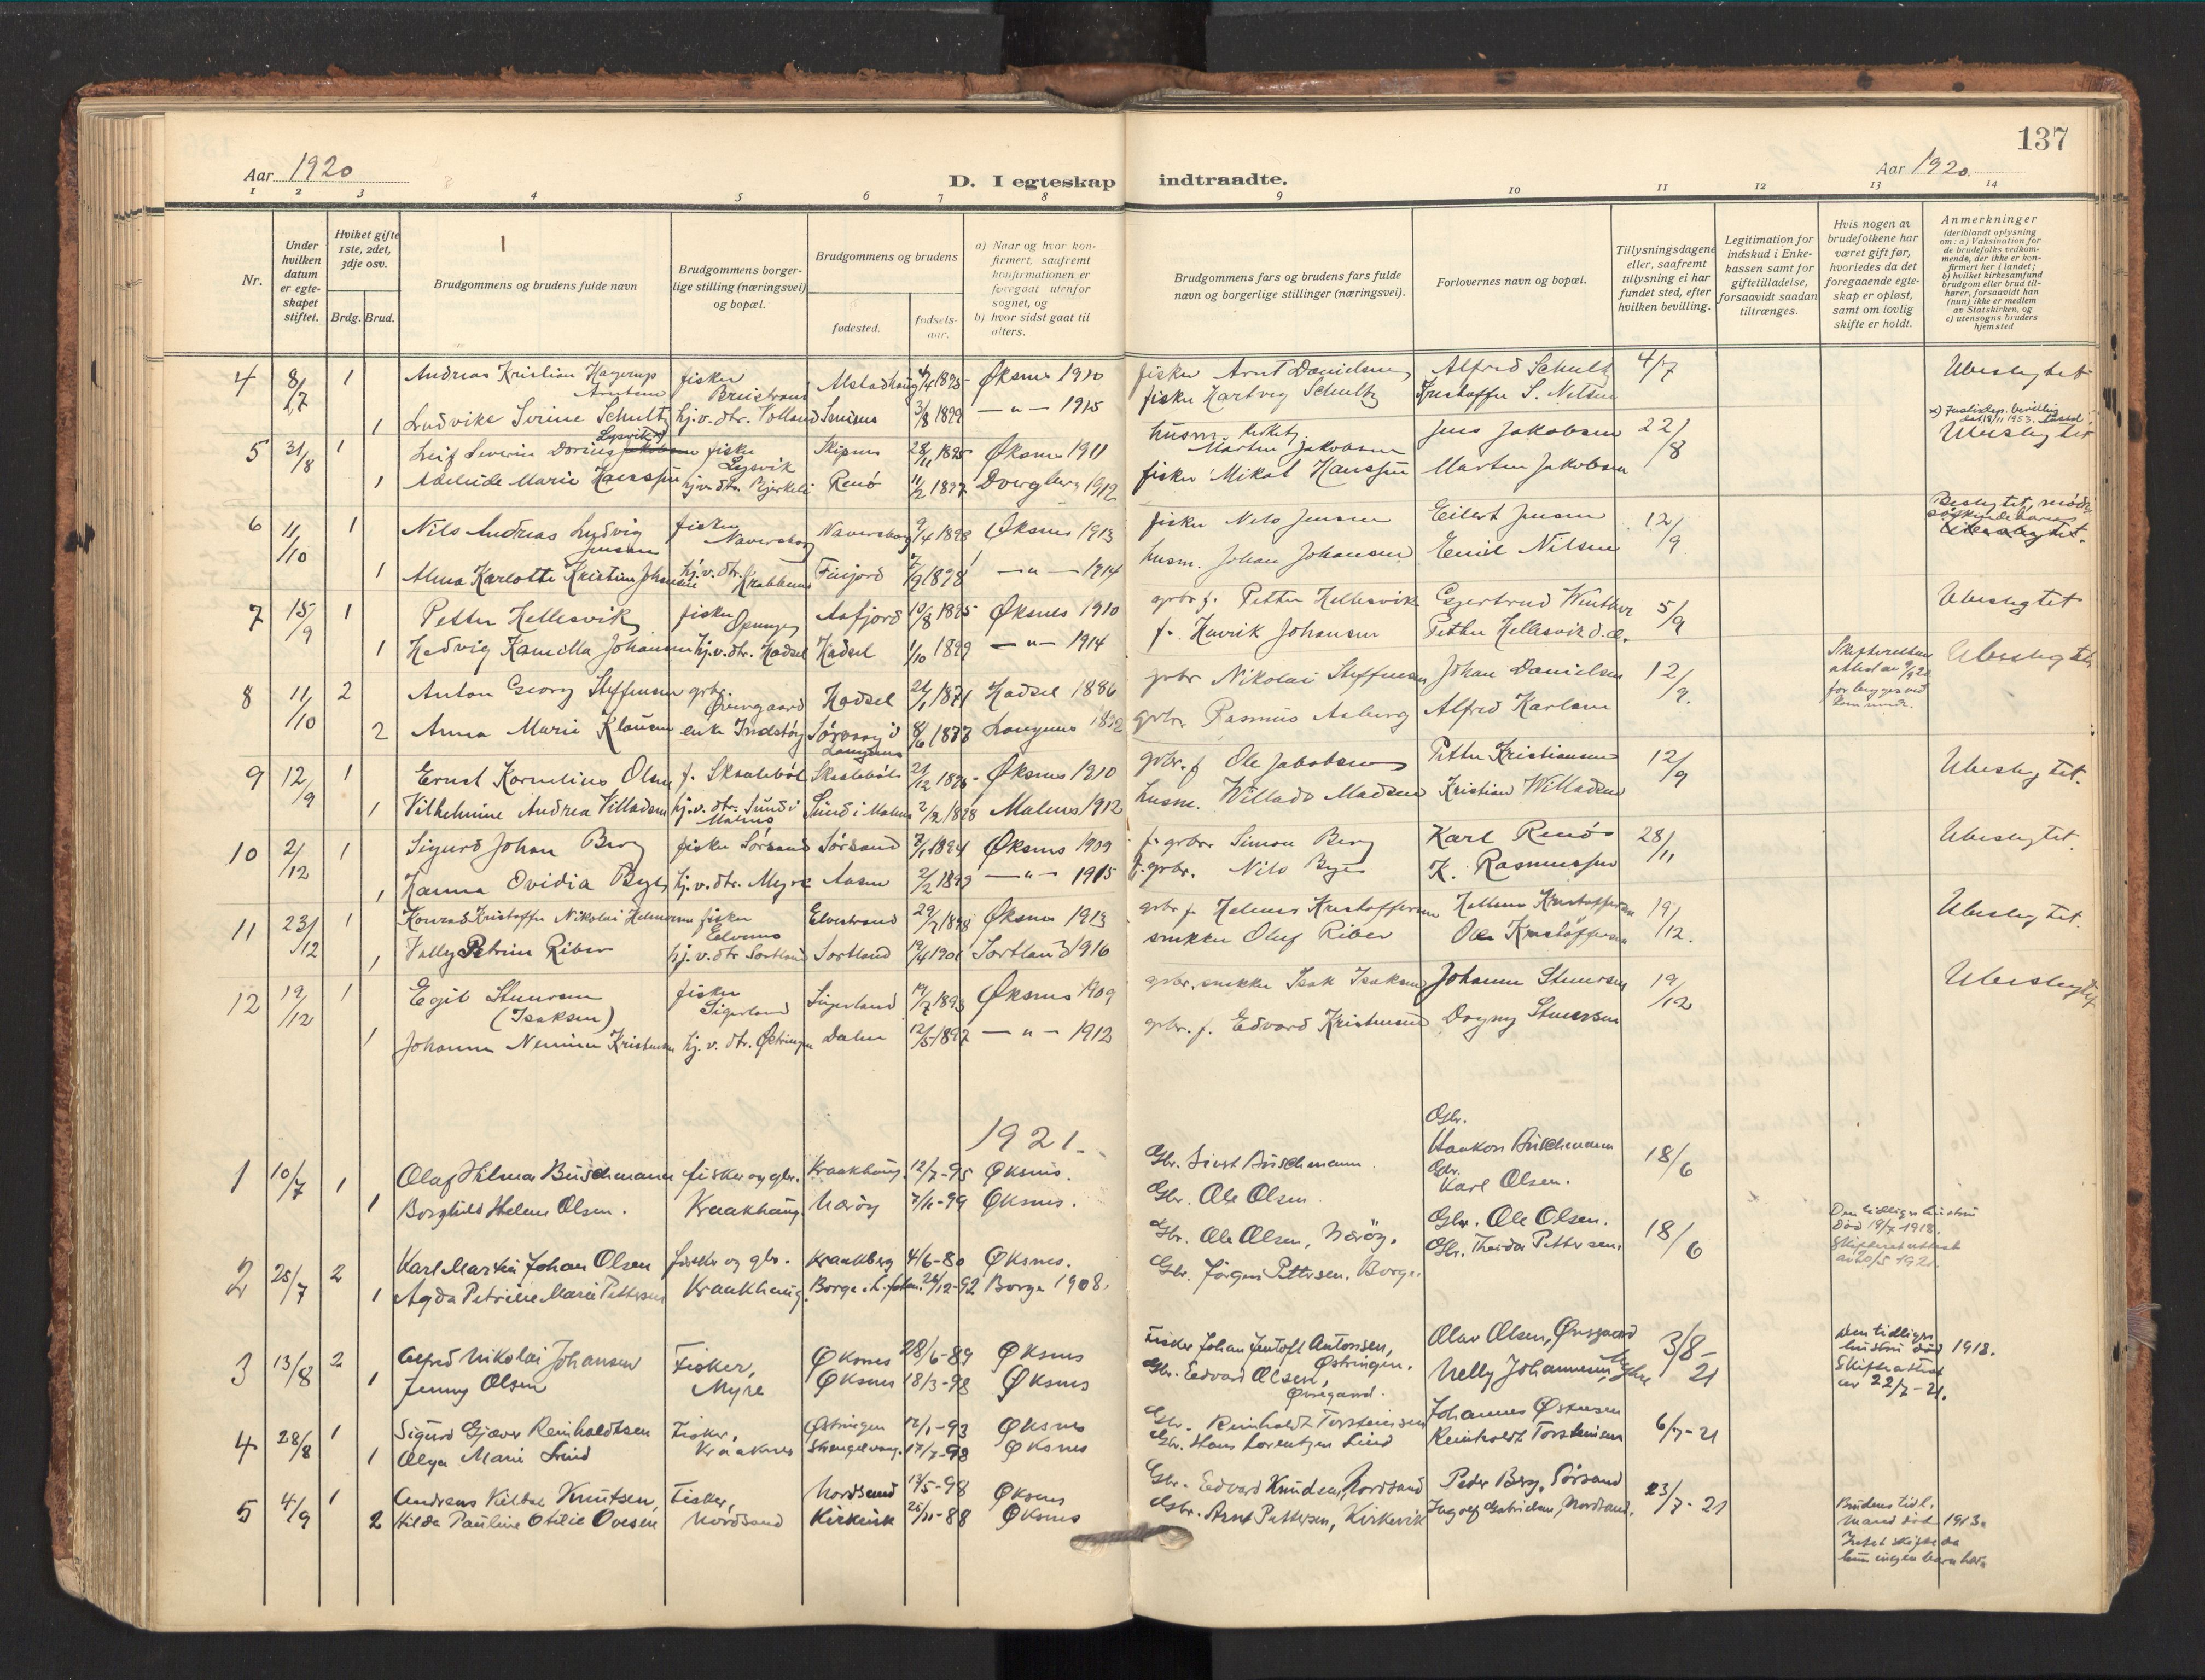 137
Aar 1920
D. I egteskap indtraadte.
Aar 1920
1 2 3 4 5 6 7 8 9 10 11 12 13 14
Nr.
Under hvilken datum er egteskapet stiftet.
Hviket gifte 1ste, 2det, 3dje osv.
Brdg. Brud.
Brudgommens og brudens fulde navn
Brudgommens borgerlige stilling (næringsvei) og bopæl.
Brudgommens og brudens
fødested.
fødselsaar.
a) Naar og hvor konfirmert, saafremt konfirmationen er foregaat utenfor sognet, og
b) hvor sidst gaat til alters.
Brudgommens fars og brudens fars fulde navn og borgerlige stillinger (næringsvei).
Forlovernes navn og bopæl.
Tillysningsdagene eller, saafremt tillysning ei har fundet sted, efter hvilken bevilling.
Legitimation for indskud i Enkekassen samt for giftetilladelse, forsaavidt saadan tiltrænges.
Hvis nogen av brudefolkene har været gift før, hvorledes da det foregaaende egteskap er opløst, samt om lovlig skifte er holdt.
Anmerkninger
(deriblandt oplysning om: a) Vaksination for de brudefolks vedkommende, der ikke er konfirmert her i landet; b) hvilket kirkesamfund brudgom eller brud tilhører, forsaavidt han (hun) ikke er medlem av Statskirken, og c) utensogns bruders hjemsted
4 8/7 1 Andreas Kristian Hagerup Arntsen fisker Alstadhaug 1895 Øksnes 1910 fisker Arnt Danielsen Alfred Schultz 4/7 Ubeslegtet
1 Ludvike Sirine Schultz hj.v.dtr. Smines 3/8 1899 — " — 1915 fisker Hartvig Schultz Kristoffer S. Nilsen
5 31/8 1 Leif Severin Dorius Jakobsen Lysvik fisker Lysvik Skipnes 28/11 1895 Øksnes 1911 husm. Martin Jakobsen Jens Jakobsen 22/8 Ubeslegtet
1 Adelside Marie Hanssen hj.v.dtr. Bjerkeli Renö 11/2 1897 Dverberg 1912 fisker Mikal Hanssen Martin Jakobsen
6 11/10 1 Nils Andreas Ludvig Jensen fisker Naversborg Naversborg 9/4 1898 Øksnes 1913 fisker Nils Jensen Eilert Jensen 12/9 Beslegtet, Ubeslegtet.
1 Alma Karlotte Kristine Johansen hj.v.dtr. Finjord 1898 — " — 1914 husm. Johan Johansen Emil Nilsen
7 15/9 1 Petter Hellesvik fisker Aafjord 10/8 1895 Øksnes 1910 grbr f. Petter Hellesvik Gjertrud Winther 5/9 Ubeslegtet
1 Hedvig Kamilla Johansen hj.v.dtr. Hadsel Hadsel 1/10 1899 — " — 1914 f. Henrik Johansen Petter Hellesvik d.æ.
8 11/10 2 Anton Georg Steffensen grbr. Øvergaard Hadsel 1871 Hadsel 1886 grbr Nikolai Steffensen Johan Danielsen 12/9. Ubeslegtet
2 Anna Marie Klausen enke Indstöy 8/6 1877 Langenes grbr. Rasmus Aaberg Alfred Karlsen
9 12/9 1 Ernst Kornelius Olsen f. Skaaleböl Skaaleböl 21/12 Øksnes 1910 grbr. f. Ole Jakobsen Petter Kristiansen 12/9 Ubeslegtet.
1 Vilhelmine Andrea Villadsen hj.v.dtr. Sund i Malnes Sund i Malnes Malnes 1912 husm. Willads Madsen Kristian Willadsen
10 2/12 1 Sigurd Johan Berg fisker Sörsand Sörsand Øksnes 1909 f. grbr. Simon Berg Karl Renö 28/11 Ubeslegtet.
1 Hanna Ovidia Bye hj.v.dtr. Myre Aasen 2/2 1899 — " — 1915 f. grbr. Nils Bye K. Rasmussen
11 23/12 1 Konrad Kristoffer Nikolai Helmersen fisker Elvenes Elvestrand Øksnes 1913 grbr f. Helmer Kristoffersen Helmer Kristoffersen 19/12. Ubeslegtet.
1 Vally Petrine Riber hj.v.dtr Sortland Sortland 19/4 1901 Sortland 1916 snekker Oluf Riber Ole Kristoffersen
12 19/12 1 Egil Steuersen (Isaksen) fisker Tigerland 19/7 1893 Øksnes 1909 grbr. snekker Isak Isaksen Johanna Steuersen 19/12 Ubeslegtet
1 Johanna Nennine Kristensen hj.v.dtr. Østringen Dalen 12/5 1892 — " — 1912 grbr. f. Edvard Kristensen Dagny Steuersen
1921.
1 10/7 1 Olaf Hilmar Buschmann fisker og gbr. Kraakhaug. 12/7-95 Øksnes. Gbr. Sivert Buschmann Gbr. Haakon Buschmann 18/6
1 Borghild Helene Olsen. Kraakhaug. Næröy 7/11-99 Øksnes. Gbr. Ole Olsen. Gbr. Karl Olsen.
2 25/7 2 Karl Martin Johan Olsen fisker og gbr. Kraakberg 4/6-80 Øksnes. Gbr. Ole Olsen, Næröy. Gbr. Ole Olsen. 18/6 Den tidligere hustru död 19/7-1918. Skifterettattest av 20/5 1921.
1 Agda Petrine Marie Pettersen Kraakhaug. Borge i Lofoten. 26/12-92 Borge 1908. Gbr. Jörgen Pettersen. Borge. Gbr. Theodor Pettersen.
3 13/8 2 Alfred Nikolai Johansen Fisker, Øksnes 28/6-89 Øksnes Fisker Johan Jentoft Antonsen, Østringen. Olav Olsen, Øvrgaard 3/8-21 Den tidligere hustru död 1918. Skifteattest av 22/7-21.
1 Jenny Olsen Myre Øksnes 18/3-98 Øksnes Gbr. Edvard Olsen, Øvregaard. Nelly Johannesen, Myre
4 28/8 1 Sigurd Gjæver Reinholdtsen Fisker, Østringen 12/1-93 Øksnes Gbr. Reinholdt Torsteinsen Johannes Østensen 6/7-21
1 Olga Marie Lind Kraaknes Strengelvaag. 17/7-98 Øksnes Gbr. Hans Lorentzen Lind Reinholdt Torsteinsen
5 4/9 1 Andreas Kildal Knutsen, Fisker, Nordsand 13/5-98 Øksnes Gbr. Edvard Knudsen, Nordsand Peder Berg, Sörsand 23/7-21
2 Hilda Pauline Otilie Ovesen Nordsand Kirkevik 25/11-88 Øksnes Gbr. Arnt Pettersen, Kirkevik Ingolf Gabrielsen, Nordsand. Brudens tidl. mand död 1913. Intet skifte da hun ingen barn har.